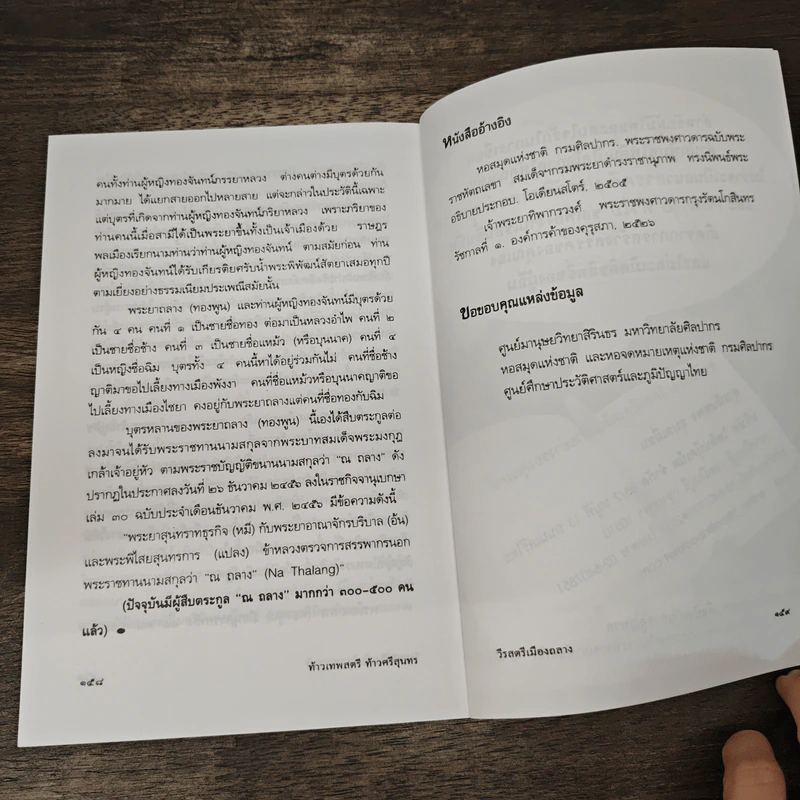 คนทั้งท่านผู้หญิงทองจันทน์ภรรยาหลวง ต่างคนต่างมีบุตรด้วยกัน
มากมาย ได้แยกสายออกไปหลายสาย แต่จะกล่าวในประวัตินี้เฉพาะ
แต่บุตรที่เกิดจากท่านผู้หญิงทองจันทน์ภริยาหลวง เพราะภริยาของ
ท่านคนนี้เมื่อสามีได้เป็นพระยาขึ้นทั้งเป็นเจ้าเมืองด้วย ราษฎร
พลเมืองเรียกนามท่านว่าท่านผู้หญิงทองจันทน์ ตามสมัยก่อน ท่าน
ผู้หญิงทองจันทน์ได้รับเกียรติยศรับน้ำพระพิพัฒน์สัตยาเสมอทุกปี
ตามเยี่ยงอย่างธรรมเนียมประเพณีสมัยนั้น
พระยาถลาง (ทองพูน) และท่านผู้หญิงทองจันทน์มีบุตรด้วย
กัน ๔ คน คนที่ ๑ เป็นชายชื่อทอง ต่อมาเป็นหลวงอำไพ คนที่ ๒
เป็นชายชื่อช้าง คนที่ ๓ เป็นชายชื่อแหม้ว (หรือบุนนาค) คนที่ ๔
เป็นหญิงชื่อฉิม บุตรทั้ง ๔ คนนี้หาได้อยู่ร่วมกันไม่ คนที่ชื่อช้าง
ญาติมาขอไปเลี้ยงทางเมืองพังงา คนที่ชื่อแหม้วหรือบุนนาคญาติขอ
ไปเลี้ยงทางเมืองไชยา คงอยู่กับพระยาถลางแต่คนที่ชื่อทองกับฉิม
บุตรหลานของพระยาถลาง (ทองพูน) นี้เองได้สืบตระกูลต่อ
ลงมาจนได้รับพระราชทานนามสกุลจากพระบาทสมเด็จพระมงกุฎ
เกล้าเจ้าอยู่หัว ตามพระราชบัญญัติขนานนามสกุลว่า "ณ ถลาง" ดัง
ปรากฏในประกาศลงวันที่ ๒๖ ธันวาคม ๒๔๕๖ ลงในราชกิจจานุเบกษา
เล่ม ๓๐ ฉบับประจำเดือนธันวาคม พ.ศ. ๒๔๕๖ มีข้อความดังนี้
"พระยาสุนทราทธุรกิจ (หมี) กับพระยาอาณาจักรบริบาล (อ้น)
และพระพิไสยสุนทรการ (แปลง) ข้าหลวงตรวจการสรรพากรนอก
พระราชทานนามสกุลว่า "ณ ถลาง" (Na Thalang)"
(ปัจจุบันมีผู้สืบตระกูล "ณ ถลาง" มากกว่า ๓๐๐-๕๐๐ คน
แล้ว) ●
๑๕๘
ท้าวเทพสตรี ท้าวศรีสุนทร
หนังสืออ้างอิง
หอสมุดแห่งชาติ กรมศิลปากร. พระราชพงศาวดารฉบับพระ
ราชหัตถเลขา สมเด็จฯกรมพระยาดำรงราชานุภาพ ทรงนิพนธ์พระ
อธิบายประกอบ. โอเดียนสโตร์. ๒๕๐๕
เจ้าพระยาทิพากรวงศ์. พระราชพงศาวดารกรุงรัตนโกสินทร
รัชกาลที่ ๑. องค์การค้าของคุรุสภา. ๒๕๒๖
ขอขอบคุณแหล่งข้อมูล
ศูนย์มานุษยวิทยาสิรินธร มหาวิทยาลัยศิลปากร
หอสมุดแห่งชาติ และหอจดหมายเหตุแห่งชาติ กรมศิลปากร
ศูนย์ศึกษาประวัติศาสตร์และภูมิปัญญาไทย
๑๕๙
วีรสตรีเมืองถลาง